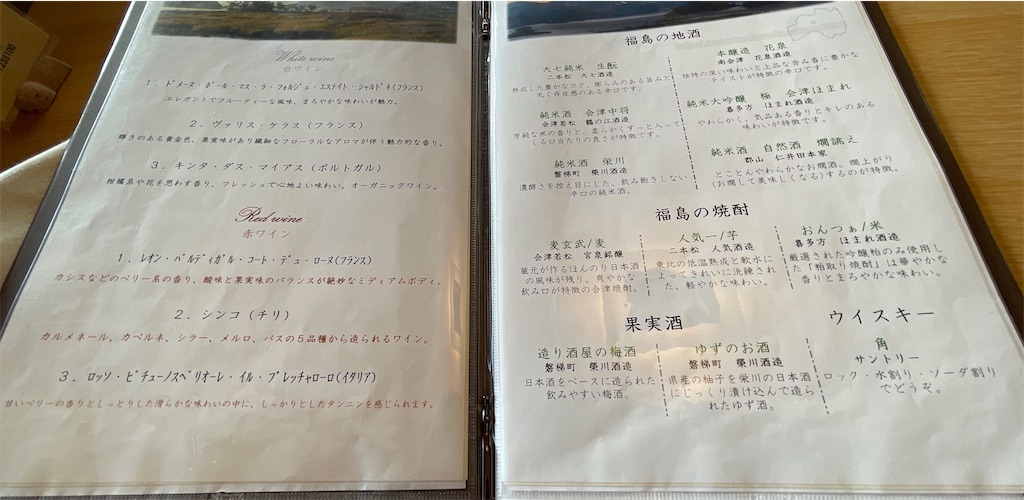 White wine
白ワイン
1．ドメーヌ・ポール・マス・ラ・フォルジュ・エステイト・シャルドネ(フランス)
エレガントでフルーティーな風味、まろやかな味わいが魅力。
2．ヴァリス・ケラス(フランス)
輝きのある黄金色、果実味があり繊細なフローラルなアロマが伴う魅力的な香り。
3．キンタ・ダス・マイアス(ポルトガル)
柑橘系や花を思わす香り、フレッシュで心地よい味わい。オーガニックワイン。
Red wine
赤ワイン
1．レオン・パルディガル・コート・デュ・ローヌ(フランス)
カシスなどのベリー系の香り、酸味と果実味のバランスが絶妙なミディアムボディ。
2．シンコ(チリ)
カルメネール、カベルネ、シラー、メルロ、パスの5品種から造られるワイン。
3．ロッソ・ピチェーノスペリオーレ・イル・ブレッチャローロ(イタリア)
甘いベリーの香りとしっとりした滑らかな味わいの中に、しっかりとしたタンニンを感じられます。
福島の地酒
大七純米　生酛
二本松　大七酒造
熟成した豊かなコク、膨らみのある旨みと
丸く存在感のある辛口。
本醸造　花泉
南会津　花泉酒造
独特の深い味わいと上品な含み香に豊かな
テイストが特徴の辛口です。
純米酒　会津中将
会津若松　鶴の江酒造
芳純な米の香りと、柔らかくすっと入って
くる口当たりの良さが特徴です。
純米大吟醸　極　会津ほまれ
喜多方　ほまれ酒造
やわらかく、気品ある香りとキレのある
味わいが特徴です。
純米酒　栄川
磐梯町　榮川酒造
濃醇さを控え目にした、飲み飽きしない
辛口の純米酒。
純米酒　自然酒　燗誂え
郡山　仁井田本家
とことんやわらかなお燗酒。燗上がり
(お燗して美味しくなる)するのが特徴。
福島の焼酎
麦玄武/麦
会津若松　宮泉銘醸
蔵元が作るほんのり日本酒
の風味が残り、爽やかな
飲み口が特徴の会津焼酎。
人気一/芋
二本松　人気酒造
東北の低温熟成と軟水に
よってきれいに洗練され
た、軽やかな味わい。
おんつぁ/米
喜多方　ほまれ酒造
厳選された吟醸粕のみ使用し
た「粕取り焼酎」は華やかな
香りとまろやかな味わい。
果実酒
造り酒屋の梅酒
磐梯町　榮川酒造
日本酒をベースに造られた
飲みやすい梅酒。
ゆずのお酒
磐梯町　榮川酒造
県産の柚子を栄川の日本酒
にじっくり漬け込んで造ら
れたゆず酒。
ウイスキー
角
サントリー
ロック・水割り・ソーダ割り
でどうぞ。